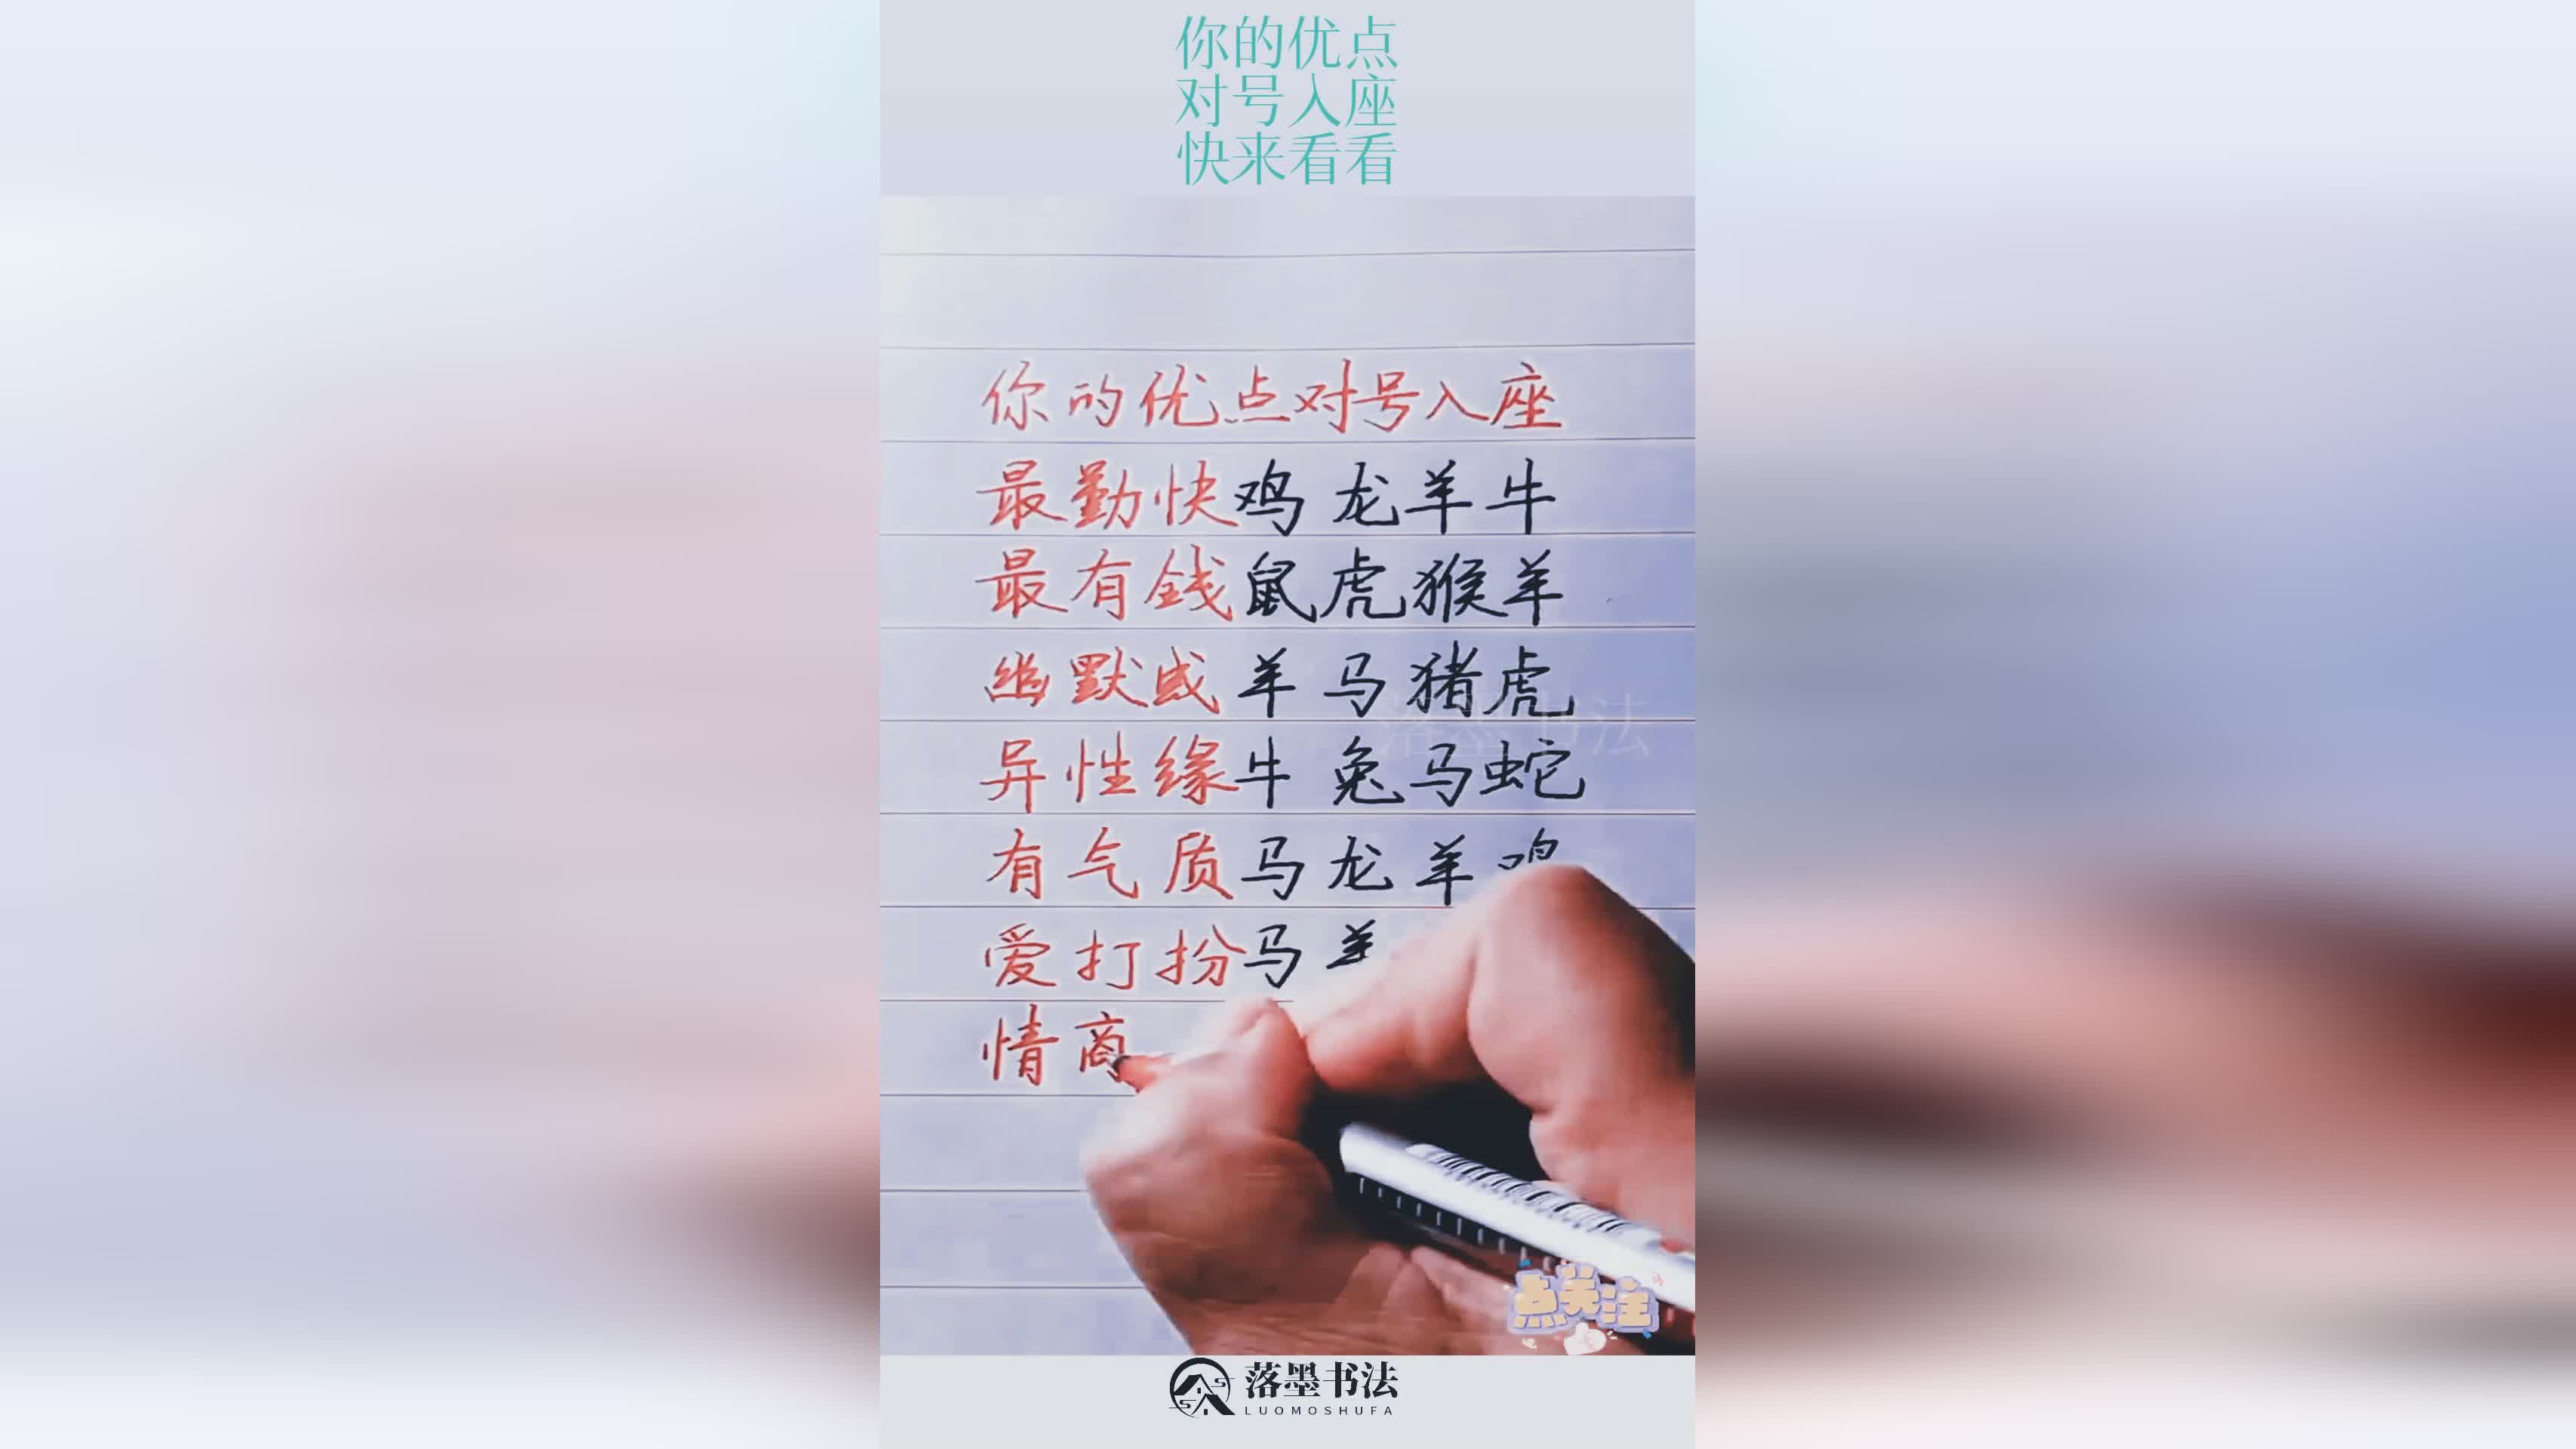 你的优点
对号入座
快来看看
你的优点对号入座
最勤快鸡龙羊牛
最有钱鼠虎猴羊
幽默感羊马猪虎
落墨书法
异性缘牛兔马蛇
有气质马龙羊鸡
爱打扮马羊
情商
点关注
落墨书法
LUOMOSHUFA